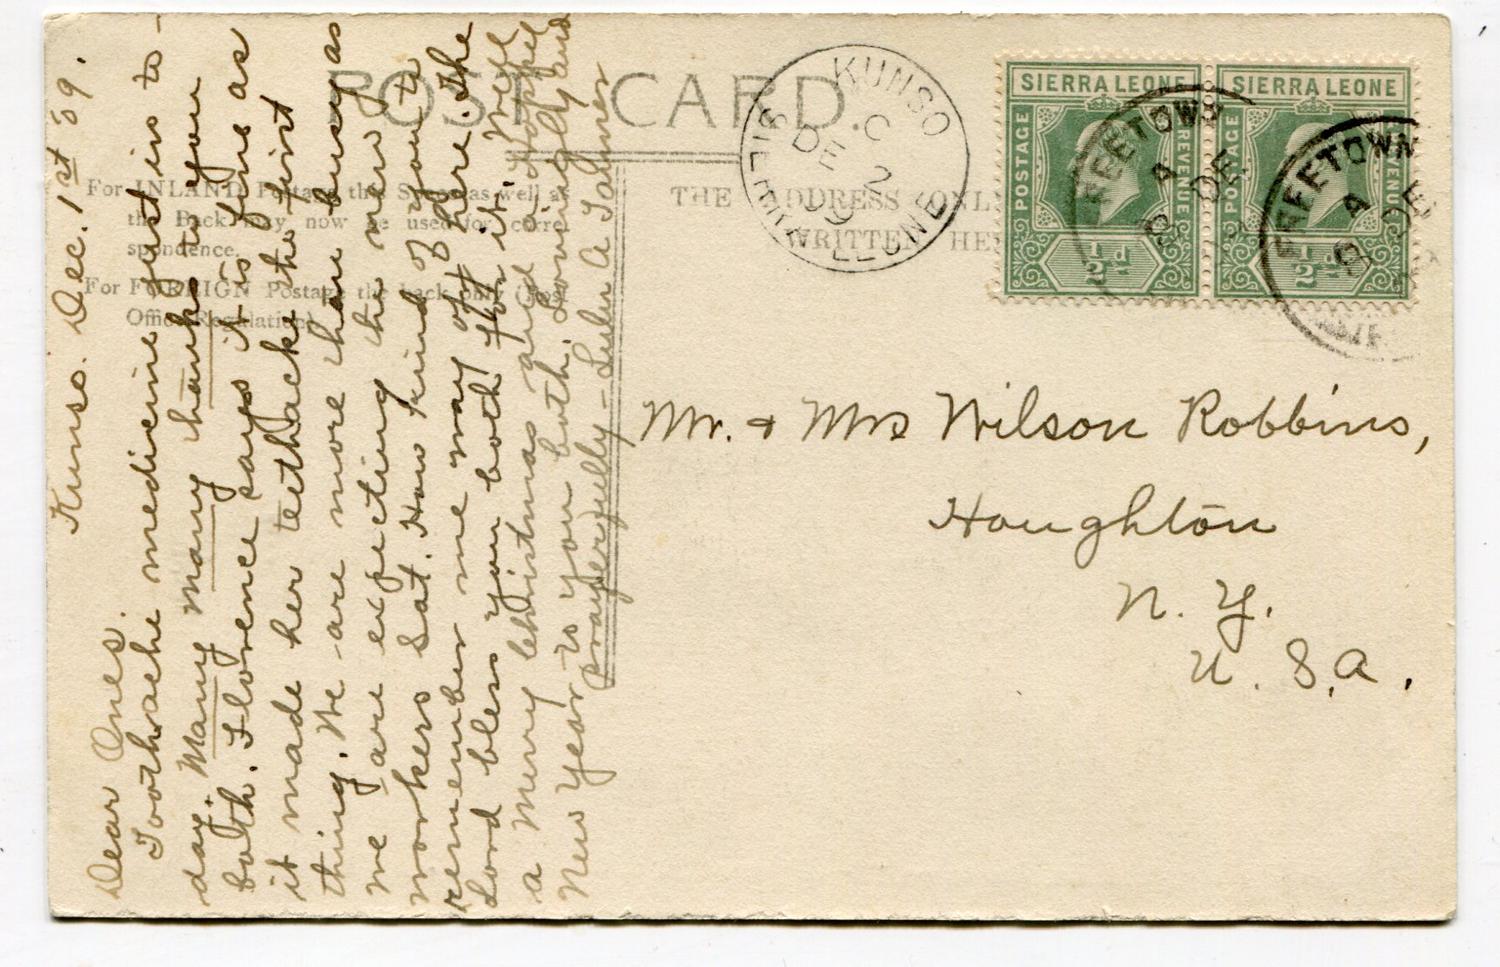 POST CARD.
For INLAND Postage this Space, as well as
the Back may now be used for corre-
spondence.
For FOREIGN Postage the back only. (Post
Office Regulation).
THE ADDRESS ONLY
WRITTEN HE
KUNSO
C
DE 2
09
SIERRA LEONE
SIERRA LEONE
POSTAGE
REVENUE
½d
SIERRA LEONE
POSTAGE
REVENUE
½d
FREETOWN
A
DE
FREETOWN
A
DE
Mr. & Mrs Wilson Robbins,
Houghton
N. Y.
U. S. A.
Kunso. Dec. 1st 09.
Dear Ones.
Toothache medicine just in to-
day. Many many thanks to you
both. Florence says it is fine as
it made her teethache the first
thing. We are more than busy as
we are expecting the new
workers Sat. How kind of you to
remember me way off here. The
Lord bless you both for it. Well
a Merry Christmas and Happy
New Year to you both. Lovingly and
prayerfully - Lulu A Tanner